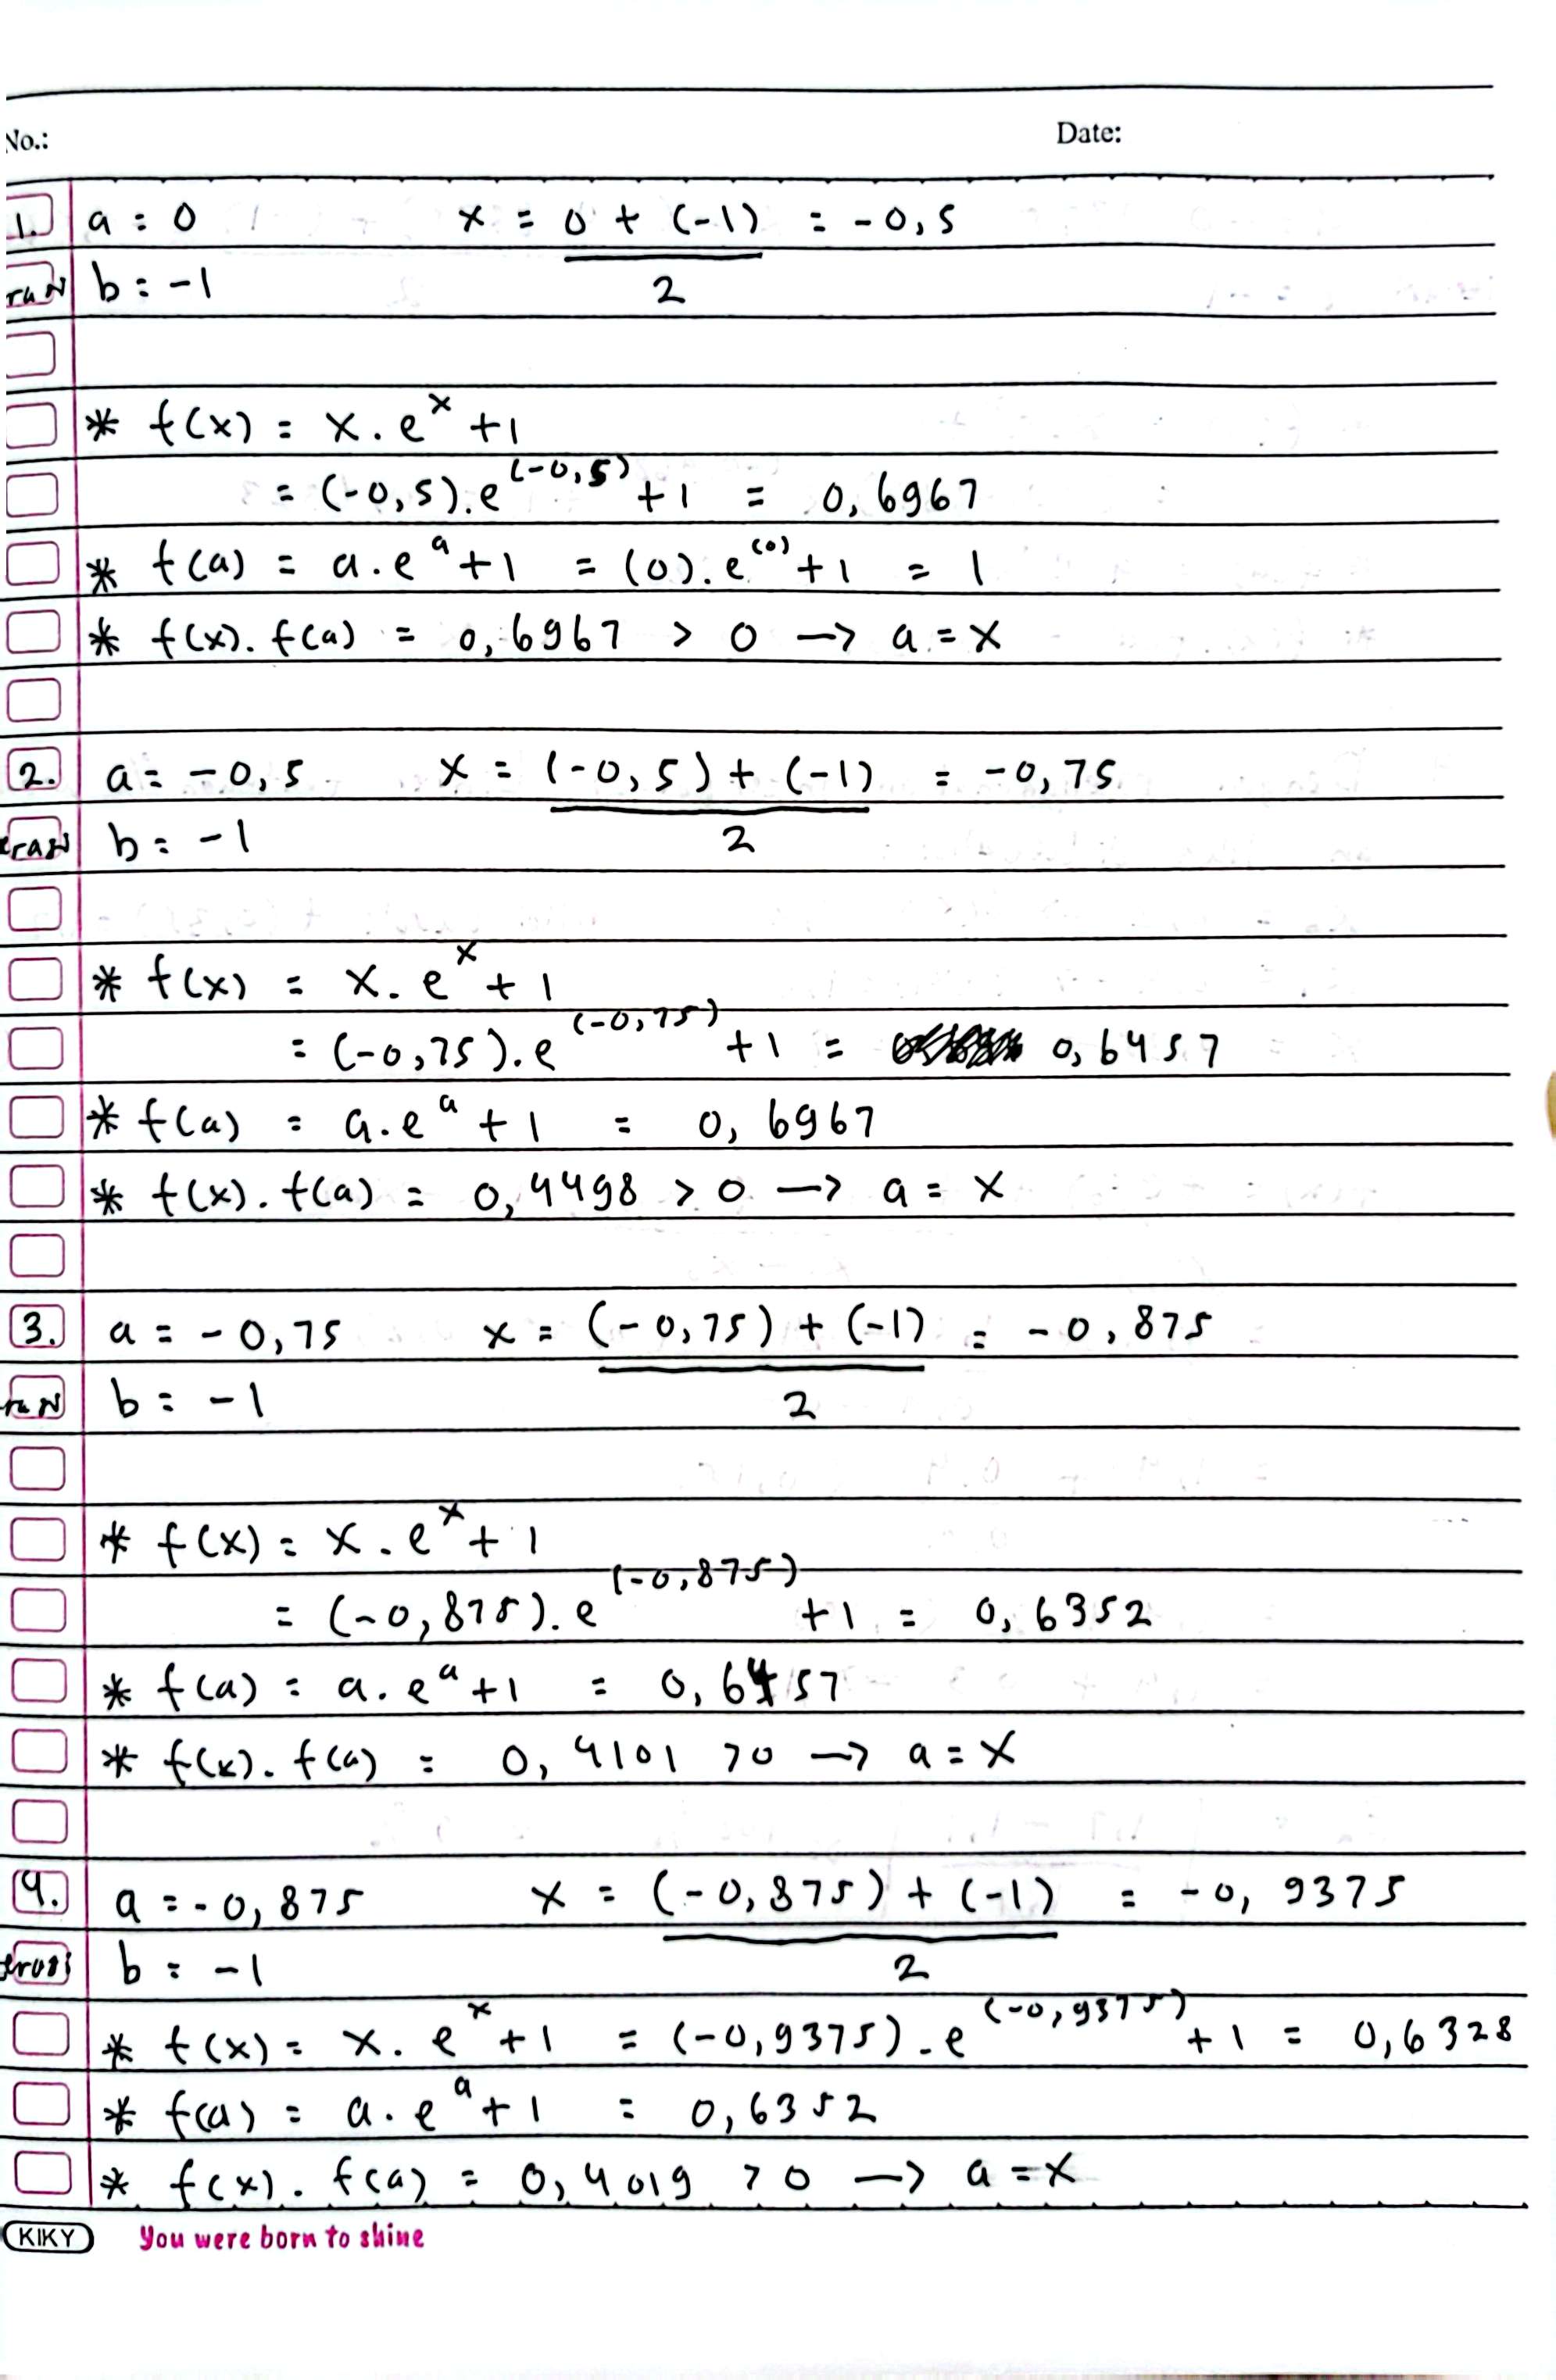 No.: Date:
1. a = 0 x = 0 + (-1) = -0,5
b = -1 2
* f(x) = x . e^x + 1
= (-0,5) . e^(-0,5) + 1 = 0,6967
* f(a) = a . e^a + 1 = (0) . e^(0) + 1 = 1
* f(x) . f(a) = 0,6967 > 0 → a = x
2. a = -0,5 x = (-0,5) + (-1) = -0,75
b = -1 2
* f(x) = x . e^x + 1
= (-0,75) . e^(-0,75) + 1 = 0,6457
* f(a) = a . e^a + 1 = 0,6967
* f(x) . f(a) = 0,4498 > 0 → a = x
3. a = -0,75 x = (-0,75) + (-1) = -0,875
b = -1 2
* f(x) = x . e^x + 1
= (-0,875) . e^(-0,875) + 1 = 0,6352
* f(a) = a . e^a + 1 = 0,6457
* f(x) . f(a) = 0,4101 > 0 → a = x
4. a = -0,875 x = (-0,875) + (-1) = -0,9375
b = -1 2
* f(x) = x . e^x + 1 = (-0,9375) . e^(-0,9375) + 1 = 0,6328
* f(a) = a . e^a + 1 = 0,6352
* f(x) . f(a) = 0,4019 > 0 → a = x
KIKY You were born to shine